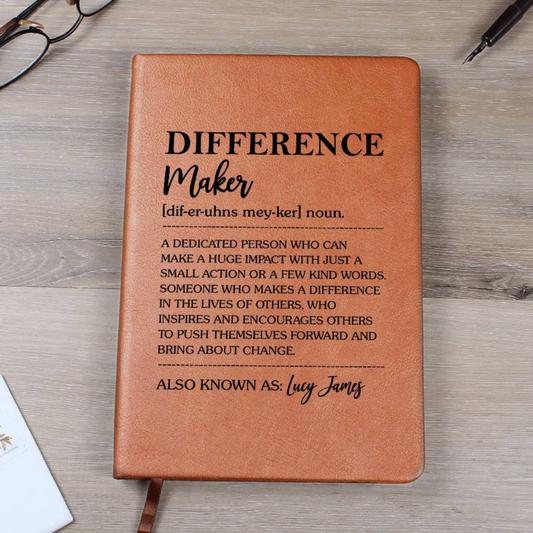 DIFFERENCE
Maker
[dif-er-uhns mey-ker] noun.
A DEDICATED PERSON WHO CAN
MAKE A HUGE IMPACT WITH JUST A
SMALL ACTION OR A FEW KIND WORDS.
SOMEONE WHO MAKES A DIFFERENCE
IN THE LIVES OF OTHERS, WHO
INSPIRES AND ENCOURAGES OTHERS
TO PUSH THEMSELVES FORWARD AND
BRING ABOUT CHANGE.
ALSO KNOWN AS: Lucy James